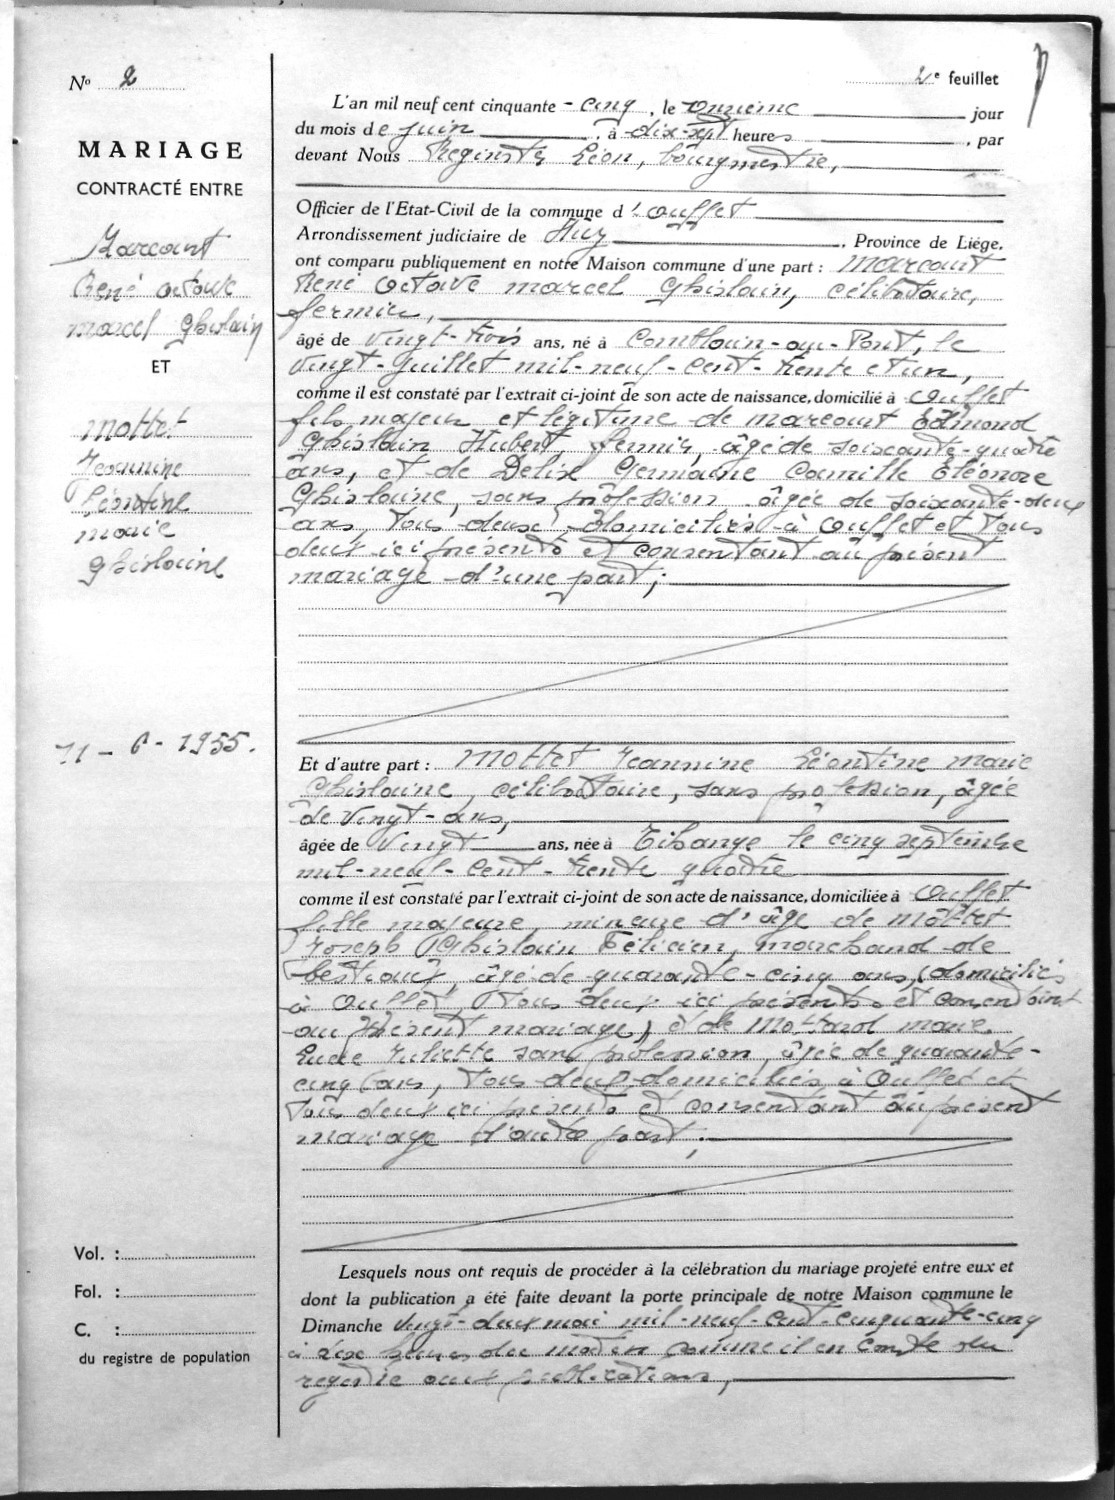 No 2
MARIAGE
CONTRACTÉ ENTRE
Marcourt
René Octave
Marcel Ghislain
ET
Mottet
Jeannine
Léontine
Marie
Ghislaine
11 - 6 - 1955.
Vol. :
Fol. :
C. :
du registre de population
2e feuillet
L'an mil neuf cent cinquante - cinq, le onzième jour
du mois de juin, à dix-sept heures, par
devant Nous Reginster Léon, bourgmestre,
Officier de l'Etat-Civil de la commune d'Ouffet
Arrondissement judiciaire de Huy, Province de Liége,
ont comparu publiquement en notre Maison commune d'une part : Marcourt
René Octave Marcel Ghislain, célibataire,
fermier,
âgé de vingt-trois ans, né à Comblain-au-Pont, le
vingt-juillet mil-neuf-cent-trente et un,
comme il est constaté par l'extrait ci-joint de son acte de naissance, domicilié à Ouffet
fils majeur et légitime de Marcourt Edmond
Ghislain Hubert, fermier, âgé de soixante-quatre
ans, et de Delix Germaine Camille Eléonore
Ghislaine, sans profession âgée de soixante-deux
ans, tous deux domiciliés à Ouffet et tous
deux ici présents et consentant au présent
mariage d'une part;
Et d'autre part : Mottet Jeannine Léontine Marie
Ghislaine, célibataire, sans profession, âgée
de vingt-ans,
âgée de vingt ans, née à Tihange le cinq septembre
mil-neuf-cent-trente quatre
comme il est constaté par l'extrait ci-joint de son acte de naissance, domiciliée à Ouffet
fille majeure, mineure d'âge de Mottet
Joseph Ghislain Félicien, marchand de
bestiaux, âgé de quarante-cinq ans, (domiciliés
à Ouffet tous deux ici présents et consentant
au présent mariage) et de Mottard Marie
Lucie Juliette sans profession, âgée de quarante-
cinq ans, tous deux domiciliés à Ouffet et
tous deux ici présents et consentant au présent
mariage d'autre part;
Lesquels nous ont requis de procéder à la célébration du mariage projeté entre eux et
dont la publication a été faite devant la porte principale de notre Maison commune le
Dimanche vingt-deux mai mil-neuf-cent-cinquante-cinq
à dix heures du matin comme il en conste du
registre aux publications,